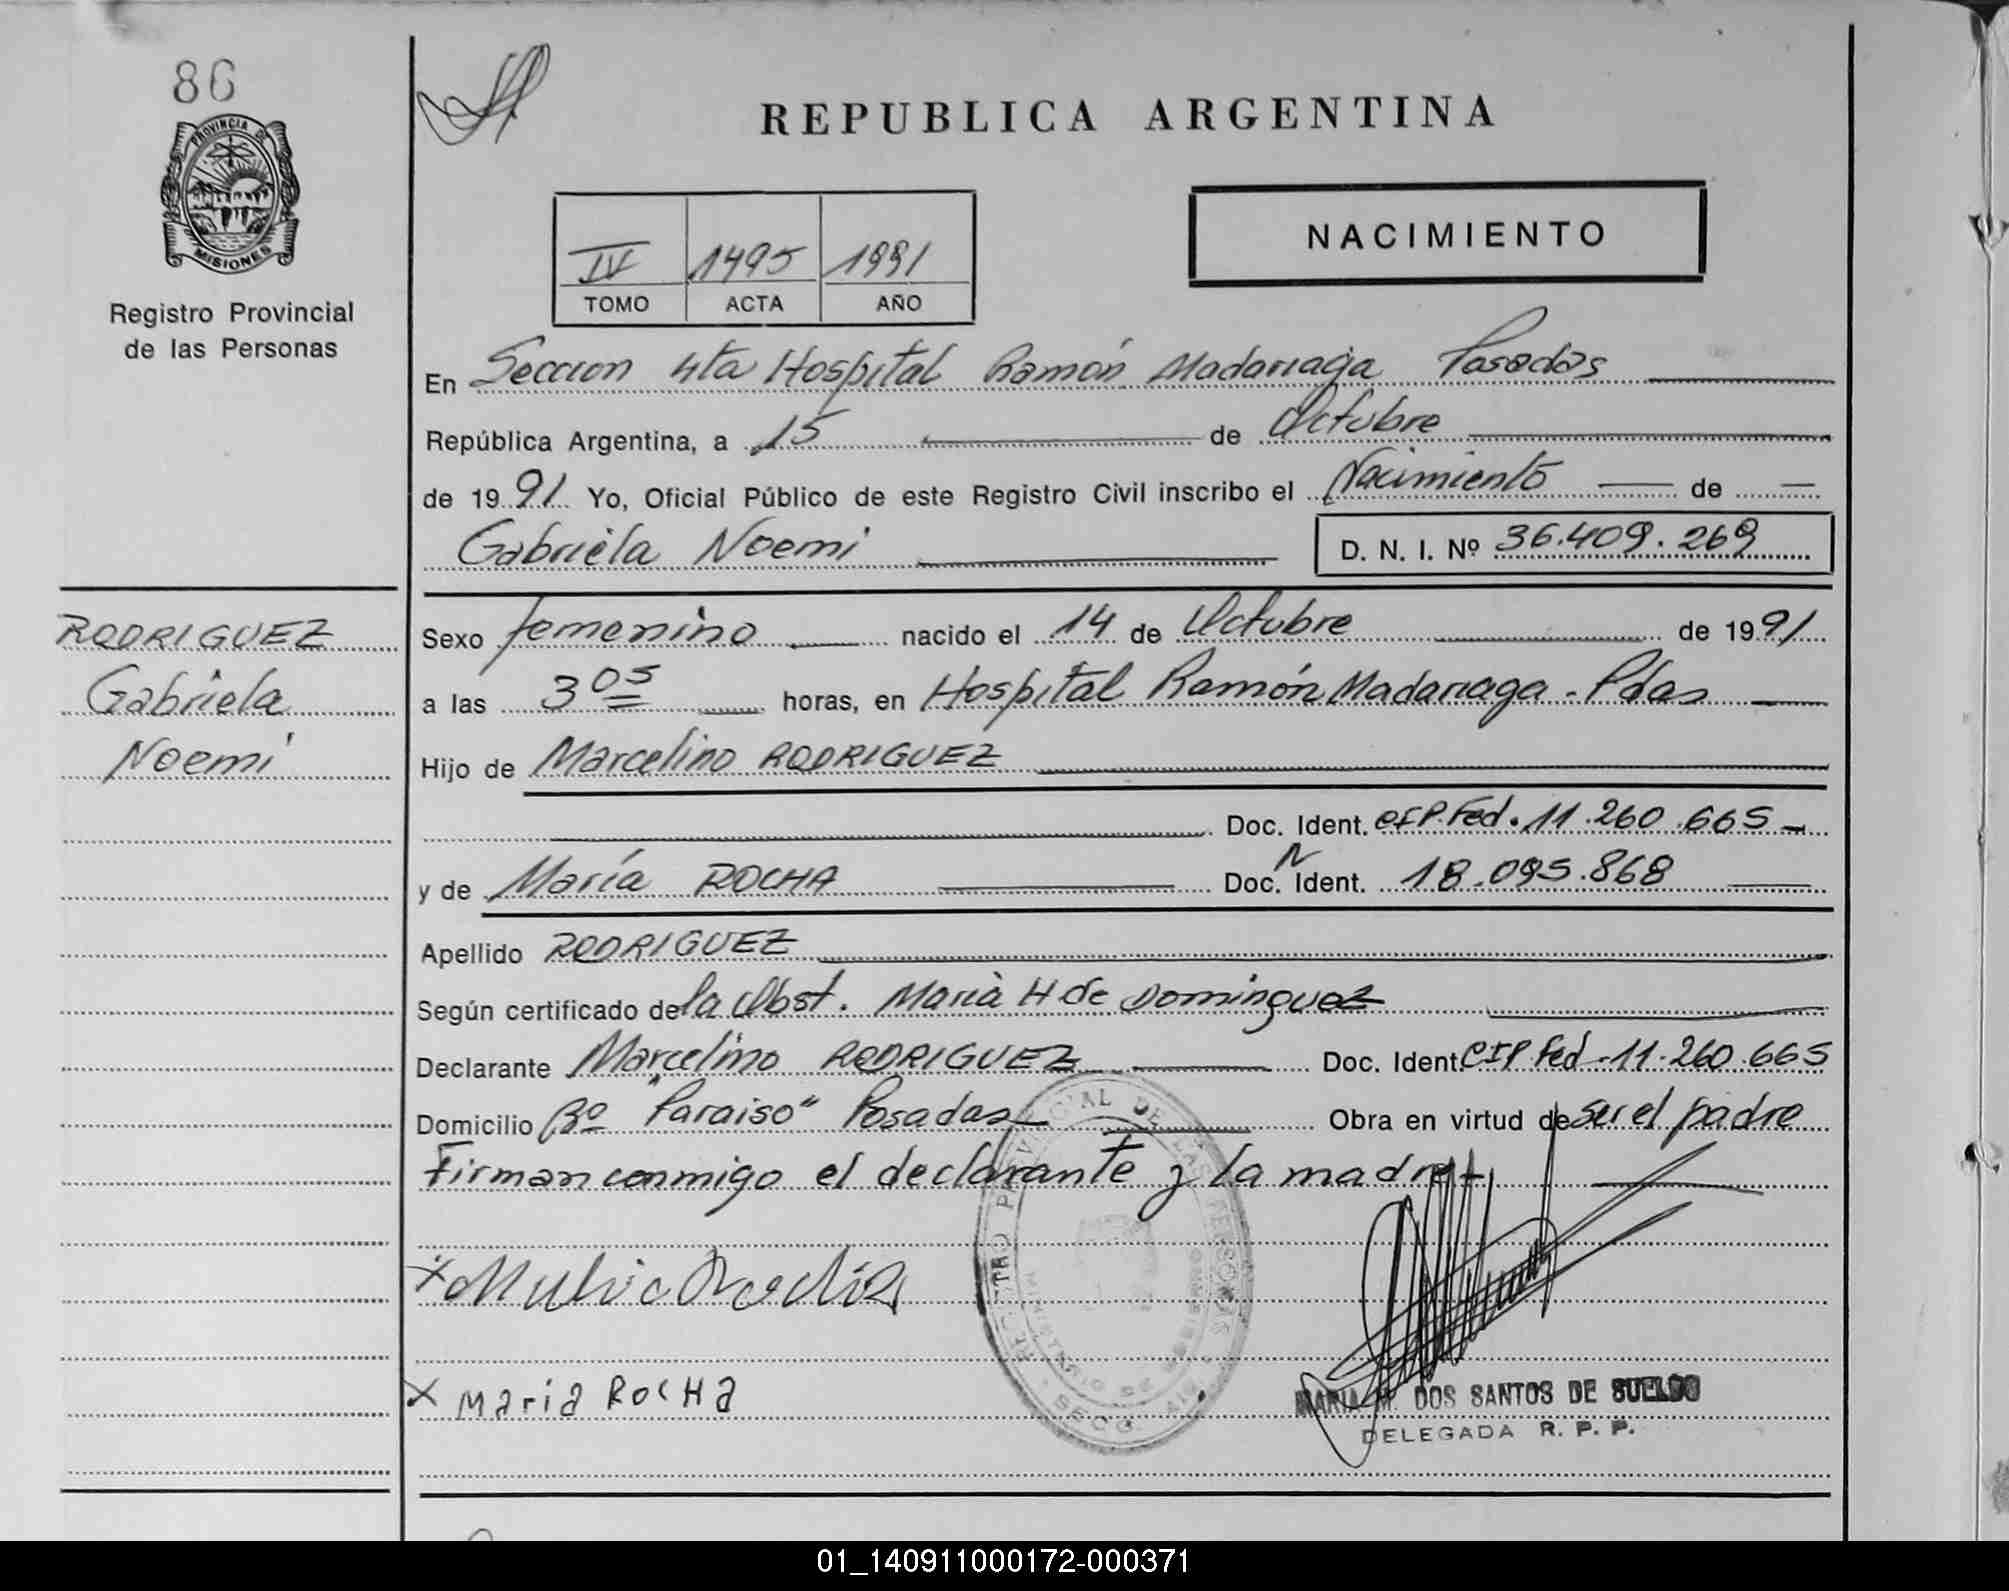 86
PROVINCIA DE
MISIONES
Registro Provincial
de las Personas
REPUBLICA ARGENTINA
IV 1495 1991
TOMO ACTA AÑO
NACIMIENTO
En Seccion 4ta Hospital Ramón Madariaga Posadas
República Argentina, a 15 de Octubre
de 1991 Yo, Oficial Público de este Registro Civil inscribo el Nacimiento de
Gabriela Noemi D. N. I. Nº 36.409.269
RODRIGUEZ
Gabriela
Noemi
Sexo femenino nacido el 14 de Octubre de 1991
a las 3 05 horas, en Hospital Ramón Madariaga - Pdas
Hijo de Marcelino RODRIGUEZ
Doc. Ident. CIP. Fed. 11.260.665
y de María ROCHA Doc. N Ident. 18.095.868
Apellido RODRIGUEZ
Según certificado de la Obst. Maria H de Dominguez
Declarante Marcelino RODRIGUEZ Doc. Ident. CIP Fed - 11.260.665
Domicilio Bº "Paraiso" Posadas Obra en virtud de ser el padre
Firman conmigo el declarante y la madre
REGISTRO PROVINCIAL DE LAS PERSONAS
x
x Maria ROCHA
MARIA M. DOS SANTOS DE SUELDO
DELEGADA R. P. P.
01_140911000172-000371